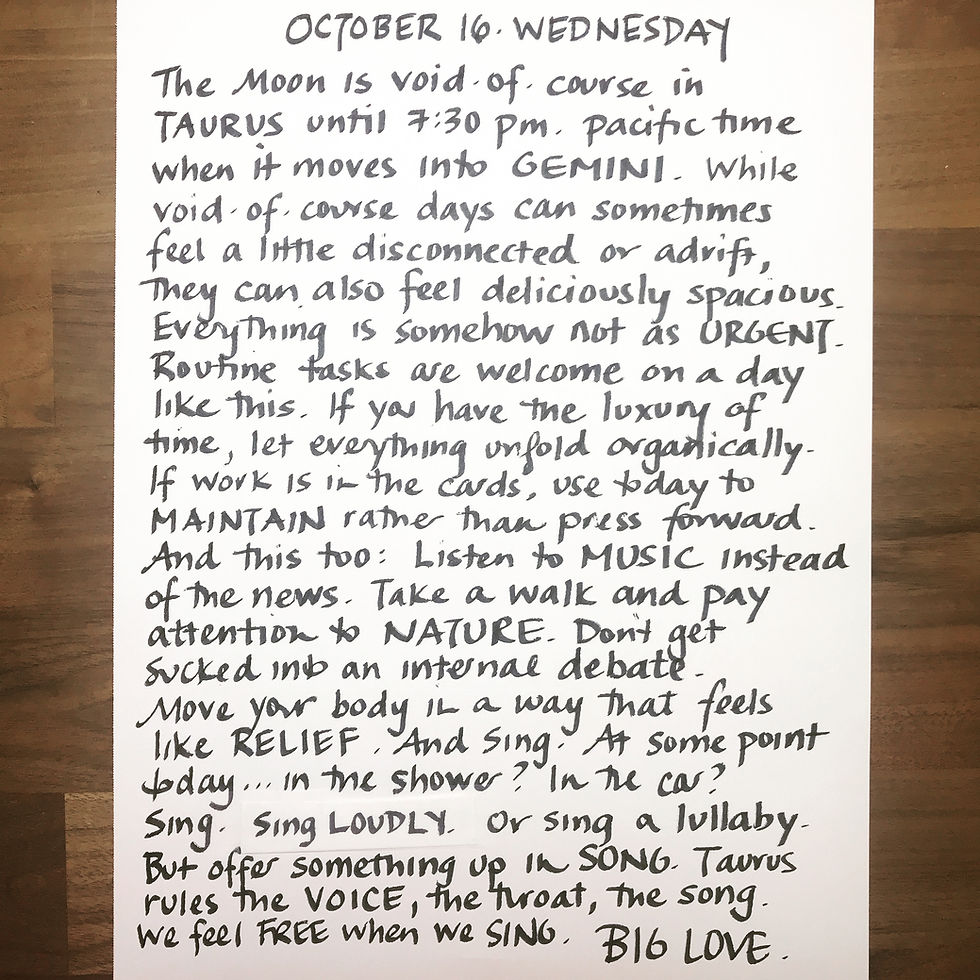 OCTOBER 16. WEDNESDAY
The Moon is void-of-course in
TAURUS until 7:30 pm. pacific time
when it moves into GEMINI. While
void-of-course days can sometimes
feel a little disconnected or adrift,
They can also feel deliciously spacious.
Everything is somehow not as URGENT.
Routine tasks are welcome on a day
like this. If you have the luxury of
time, let everything unfold organically.
If work is in the cards, use today to
MAINTAIN rather than press forward.
And this too: Listen to MUSIC instead
of the news. Take a walk and pay
attention to NATURE. Don't get
sucked into an internal debate.
Move your body in a way that feels
like RELIEF. And Sing. At some point
today... in the shower? In the car?
Sing. Sing LOUDLY. Or sing a lullaby.
But offer something up in SONG. Taurus
rules the VOICE, the throat, the song.
We feel FREE when we SING. BIG LOVE.